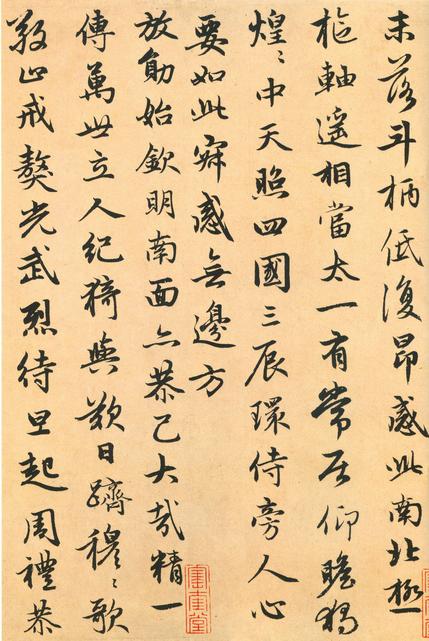 未落斗柄低復昂感此南北極
樞軸遥相當太一有常居仰瞻獨
煌〻中天照四國三辰環侍旁人心
要如此寂感無邊方
放勛始欽明南面亦恭己大哉精一
傳萬世立人紀猗與歎日躋穆〻歌
敬止戒獒光武烈待旦起周禮恭